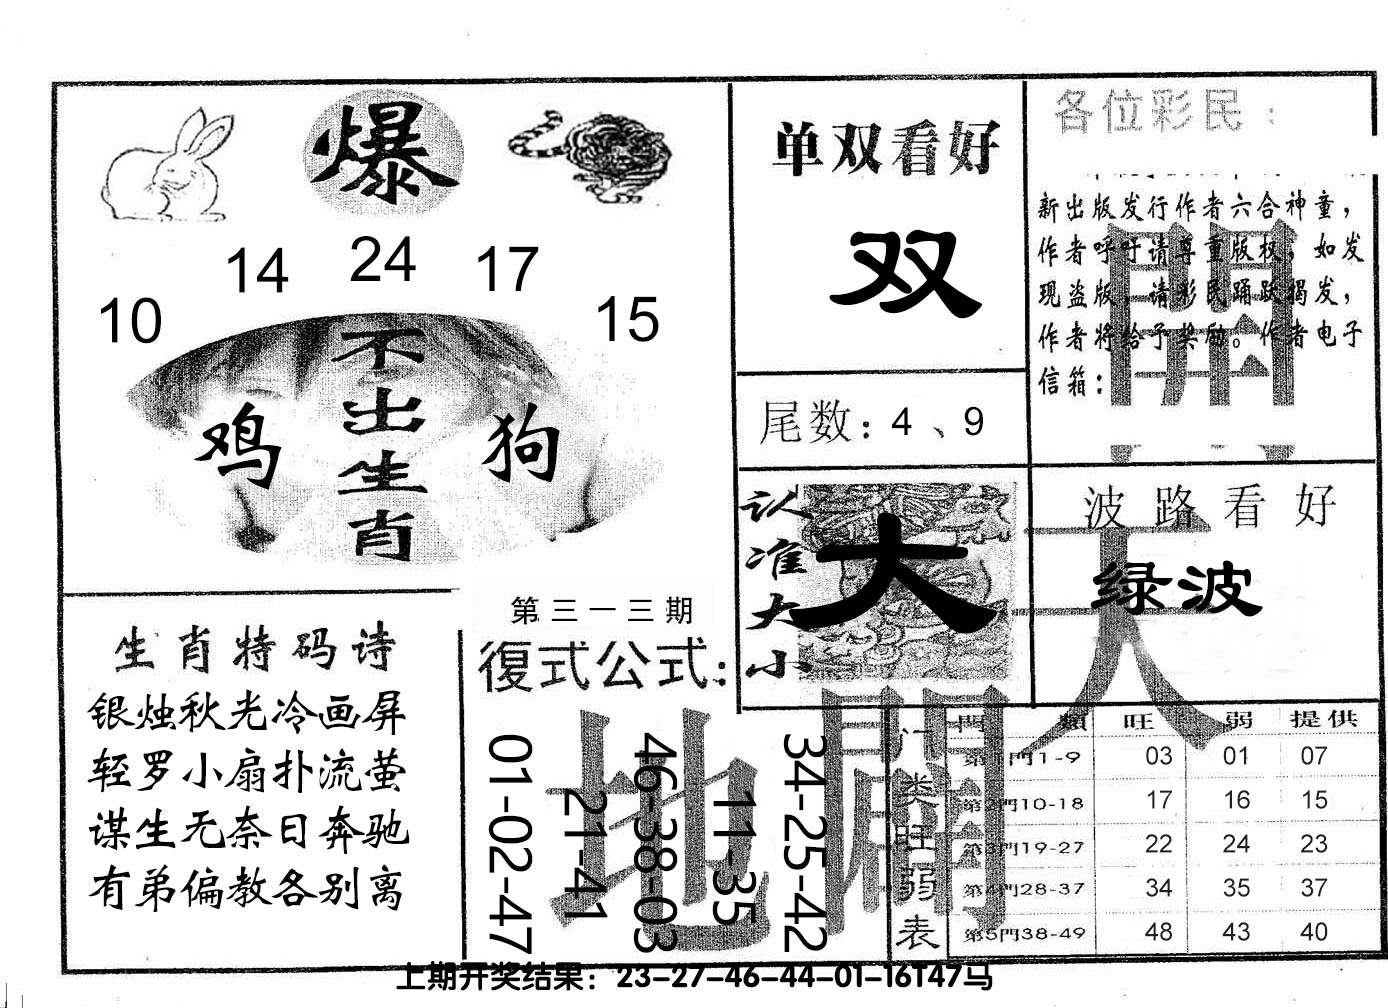 爆
10
14
24
17
15
不出生肖
鸡
狗
单双看好
双
尾数：4、9
各位彩民：
新出版发行作者六合神童，
作者呼吁请尊重版权，如发
现盗版，请彩民踊跃揭发，
作者将给予奖励。作者电子
信箱：
開
认准大小
大
波路看好
绿波
天
生肖特码诗
银烛秋光冷画屏
轻罗小扇扑流萤
谋生无奈日奔驰
有弟偏教各别离
第三一三期
復式公式：
01-02-47
21-41
46-38-03
11-35
34-25-42
地
闢
门类旺弱表
門類 旺 弱 提供
第1門1-9 03 01 07
第2門10-18 17 16 15
第3門19-27 22 24 23
第4門28-37 34 35 37
第5門38-49 48 43 40
上期开奖结果：23-27-46-44-01-16T47马